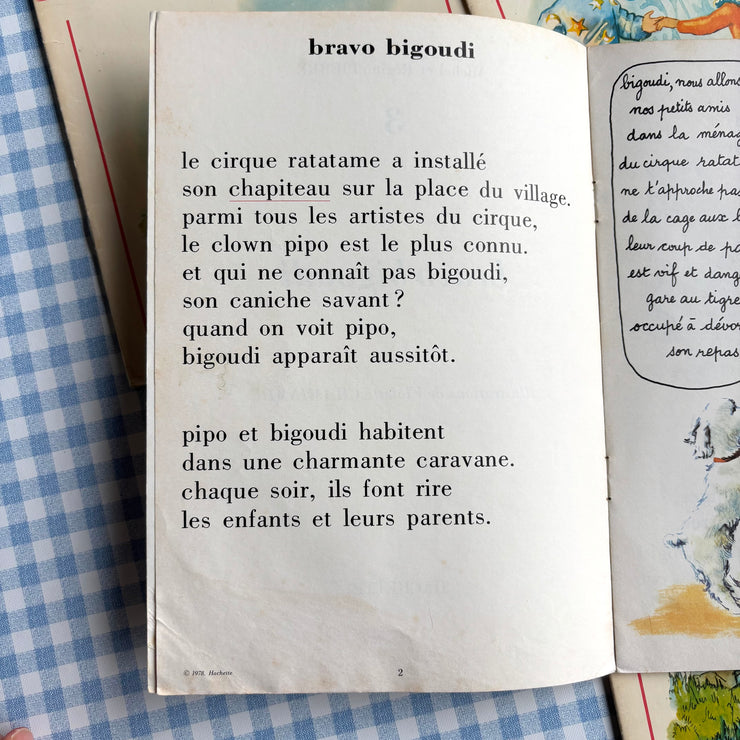 bravo bigoudi
le cirque ratatame a installé
son chapiteau sur la place du village.
parmi tous les artistes du cirque,
le clown pipo est le plus connu.
et qui ne connaît pas bigoudi,
son caniche savant ?
quand on voit pipo,
bigoudi apparaît aussitôt.
pipo et bigoudi habitent
dans une charmante caravane.
chaque soir, ils font rire
les enfants et leurs parents.
© 1978, Hachette
2
bigoudi, nous allons
nos petits amis
dans la
du cirque
ne t'approche pas
de la cage aux
leur coup de
est vif et
gare au tigre
occupé à
son repas